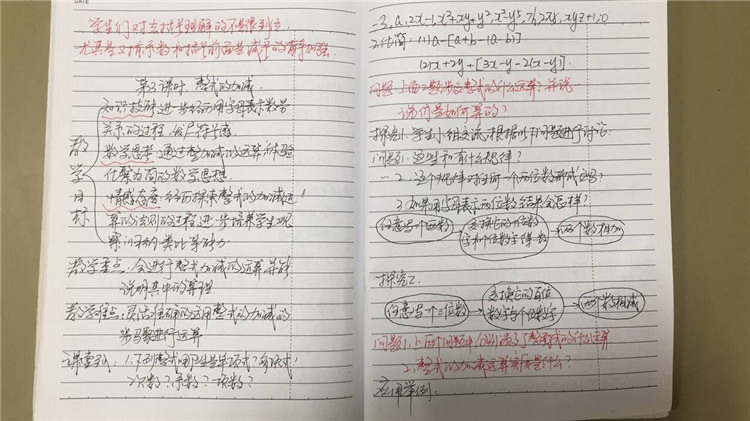 学生们对去括号理解的不是很到位,
尤其是对带系数和括号前面是减号的有待加强
第3课时 整式的加减
教学目标
知识技能:进一步经历用字母表示数量
关系的过程,发展符号感
数学思考:通过整式加减的运算,体验
化繁为简的数学思想
情感态度:经历探索整式的加减运
算的法则的过程,进一步培养学生观
察、归纳、类比等能力
教学重点:会进行整式加减的运算,并能
说明其中的算理
教学难点:灵活准确的运用整式的加减的
步骤进行运算
课堂引入:1.下列整式哪些是单项式?多项式?
次数?系数?项数?
2.化简:(1)a-[a+b-(a-b)]
(2)x+2y+[3x-y-2(x-y)]
问题:上面2题涉及整式的什么运算?并说
说你是如何算的?
探究1.学生小组交流,根据以下问题进行讨论
问题1.这些和有什么规律?
2.这个规律对任何一个两位数都成立吗?
3.如果用字母表示两位数,结果会怎样?
任意写一个两位数
交换它的十位数
字和个位数字得一数
两个数相加
探究2.
任意写一个三位数
交换它的百位
数字与个位数字
两个数相减
2.整式的加减运算实质是什么?
应用举例